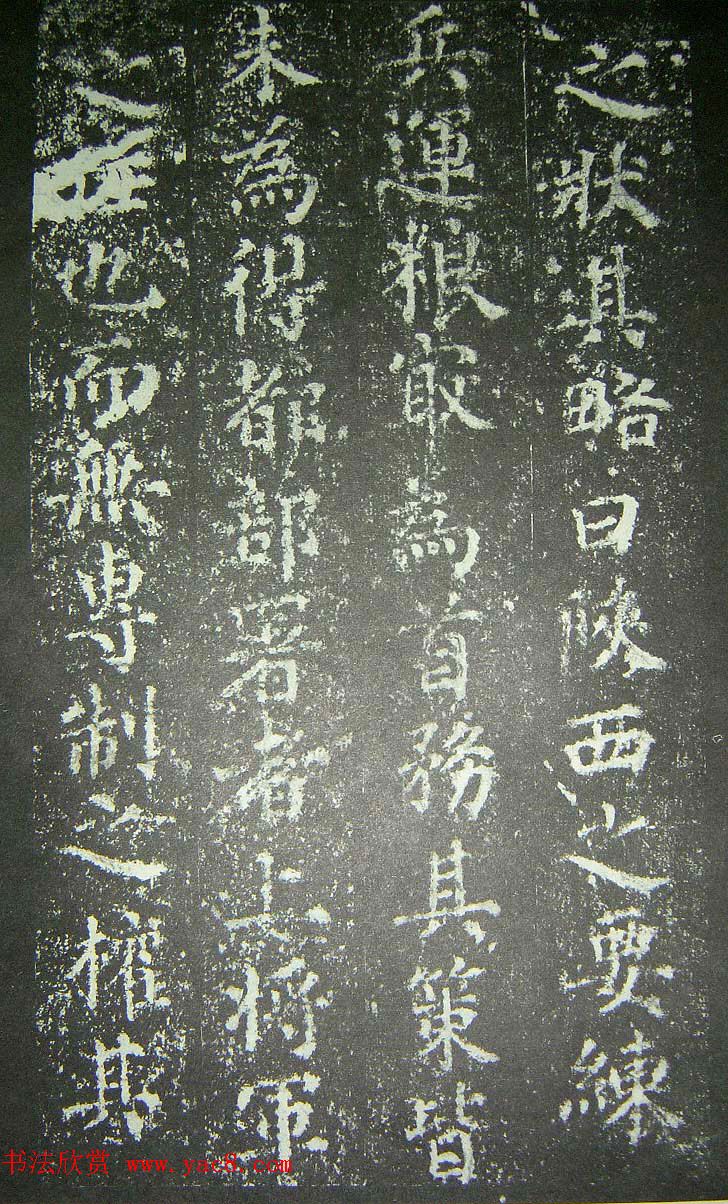 之狀其略曰陝西之要練
兵運粮最為首務其策皆
未為得都部署者上将軍
之任也而無專制之權其
书法欣赏 www.yac8.com